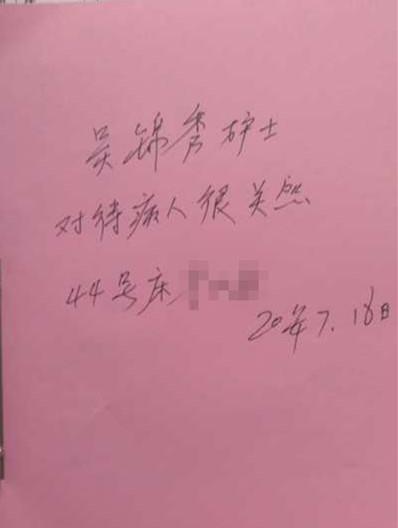 吴锦秀护士
对待病人很关怂
44号床
20年7.18日